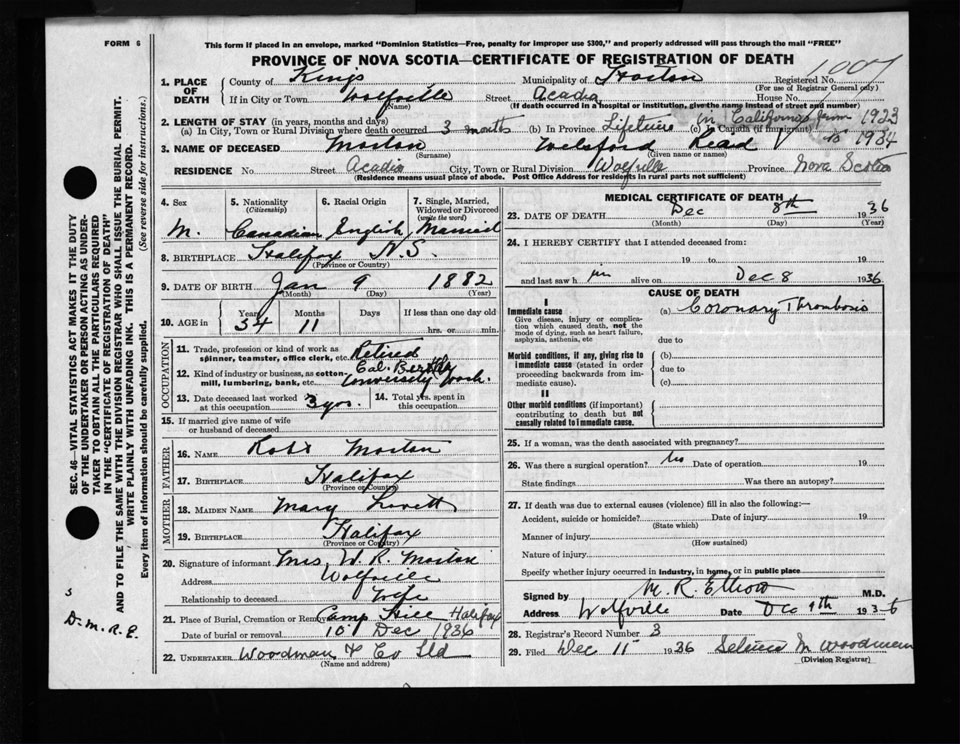 FORM 6
This form if placed in an envelope, marked "Dominion Statistics—Free, penalty for improper use $300," and properly addressed will pass through the mail "FREE"
PROVINCE OF NOVA SCOTIA—CERTIFICATE OF REGISTRATION OF DEATH
1007
1. PLACE OF DEATH
County of Kings Municipality of Horton Registered No.
(For use of Registrar General only)
If in City or Town Wolfville Street Acadia House No.
(Name) (If death occurred in a hospital or institution, give the name instead of street and number)
2. LENGTH OF STAY (in years, months and days)
(a) In City, Town or Rural Division where death occurred 3 months (b) In Province Lifetime (c) In Canada (if immigrant)
in California from 1923 to 1934
3. NAME OF DECEASED Morton Welsford Read
(Surname) (Given name or names)
RESIDENCE No. Street Acadia City, Town or Rural Division Wolfville Province Nova Scotia
(Residence means usual place of abode. Post Office Address for residents in rural parts not sufficient)
SEC. 46—VITAL STATISTICS ACT MAKES IT THE DUTY
OF THE UNDERTAKER OR PERSON ACTING AS UNDER-
TAKER TO OBTAIN ALL THE PARTICULARS REQUIRED
IN THE "CERTIFICATE OF REGISTRATION OF DEATH"
AND TO FILE THE SAME WITH THE DIVISION REGISTRAR WHO SHALL ISSUE THE BURIAL PERMIT.
WRITE PLAINLY WITH UNFADING INK. THIS IS A PERMANENT RECORD.
Every item of information should be carefully supplied. (See reverse side for instructions.)
4. Sex
M.
5. Nationality
(Citizenship)
Canadian
6. Racial Origin
English
7. Single, Married, Widowed or Divorced
(write the word)
Married
8. BIRTHPLACE Halifax N.S.
(Province or Country)
9. DATE OF BIRTH Jan 9 1882
(Month) (Day) (Year)
10. AGE in Years Months Days If less than one day
54 11 hrs. or min.
OCCUPATION
11. Trade, profession or kind of work as spinner, teamster, office clerk, etc. Retired
12. Kind of industry or business, as cotton-mill, lumbering, bank, etc. Cal. University work.
13. Date deceased last worked at this occupation 3 yrs.
14. Total yrs. spent in this occupation
15. If married give name of wife or husband of deceased
FATHER
16. NAME Robt Morton
17. BIRTHPLACE Halifax
(Province or Country)
MOTHER
18. MAIDEN NAME Mary Lovett
19. BIRTHPLACE Halifax
(Province or Country)
20. Signature of informant Mrs. W. R. Morton
Address Wolfville
Relationship to deceased Wife
21. Place of Burial, Cremation or Removal Camp Hill Halifax
Date of burial or removal 10 Dec 1936
22. UNDERTAKER Woodman & Co Ltd
(Name and address)
3
D.M.R.E.
MEDICAL CERTIFICATE OF DEATH
23. DATE OF DEATH Dec 8th 1936
(Month) (Day) (Year)
24. I HEREBY CERTIFY that I attended deceased from:
19 to 19
and last saw him alive on Dec 8 1936
CAUSE OF DEATH
I
Immediate cause
Give disease, injury or complication which caused death, not the mode of dying, such as heart failure, asphyxia, asthenia, etc
(a) Coronary Thrombosis
due to
Morbid conditions, if any, giving rise to immediate cause (stated in order proceeding backwards from immediate cause).
(b)
due to
(c)
II
Other morbid conditions (if important) contributing to death but not causally related to immediate cause.
25. If a woman, was the death associated with pregnancy?
26. Was there a surgical operation? No Date of operation 19
State findings Was there an autopsy?
27. If death was due to external causes (violence) fill in also the following:—
Accident, suicide or homicide? Date of injury 19
(State which)
Manner of injury
(How sustained)
Nature of injury
Specify whether injury occurred in industry, in home, or in public place
Signed by M. R. Elliott M.D.
Address Wolfville Date Dec 9th 1936
28. Registrar's Record Number 3
29. Filed Dec 11 1936 M Woodman
(Division Registrar)